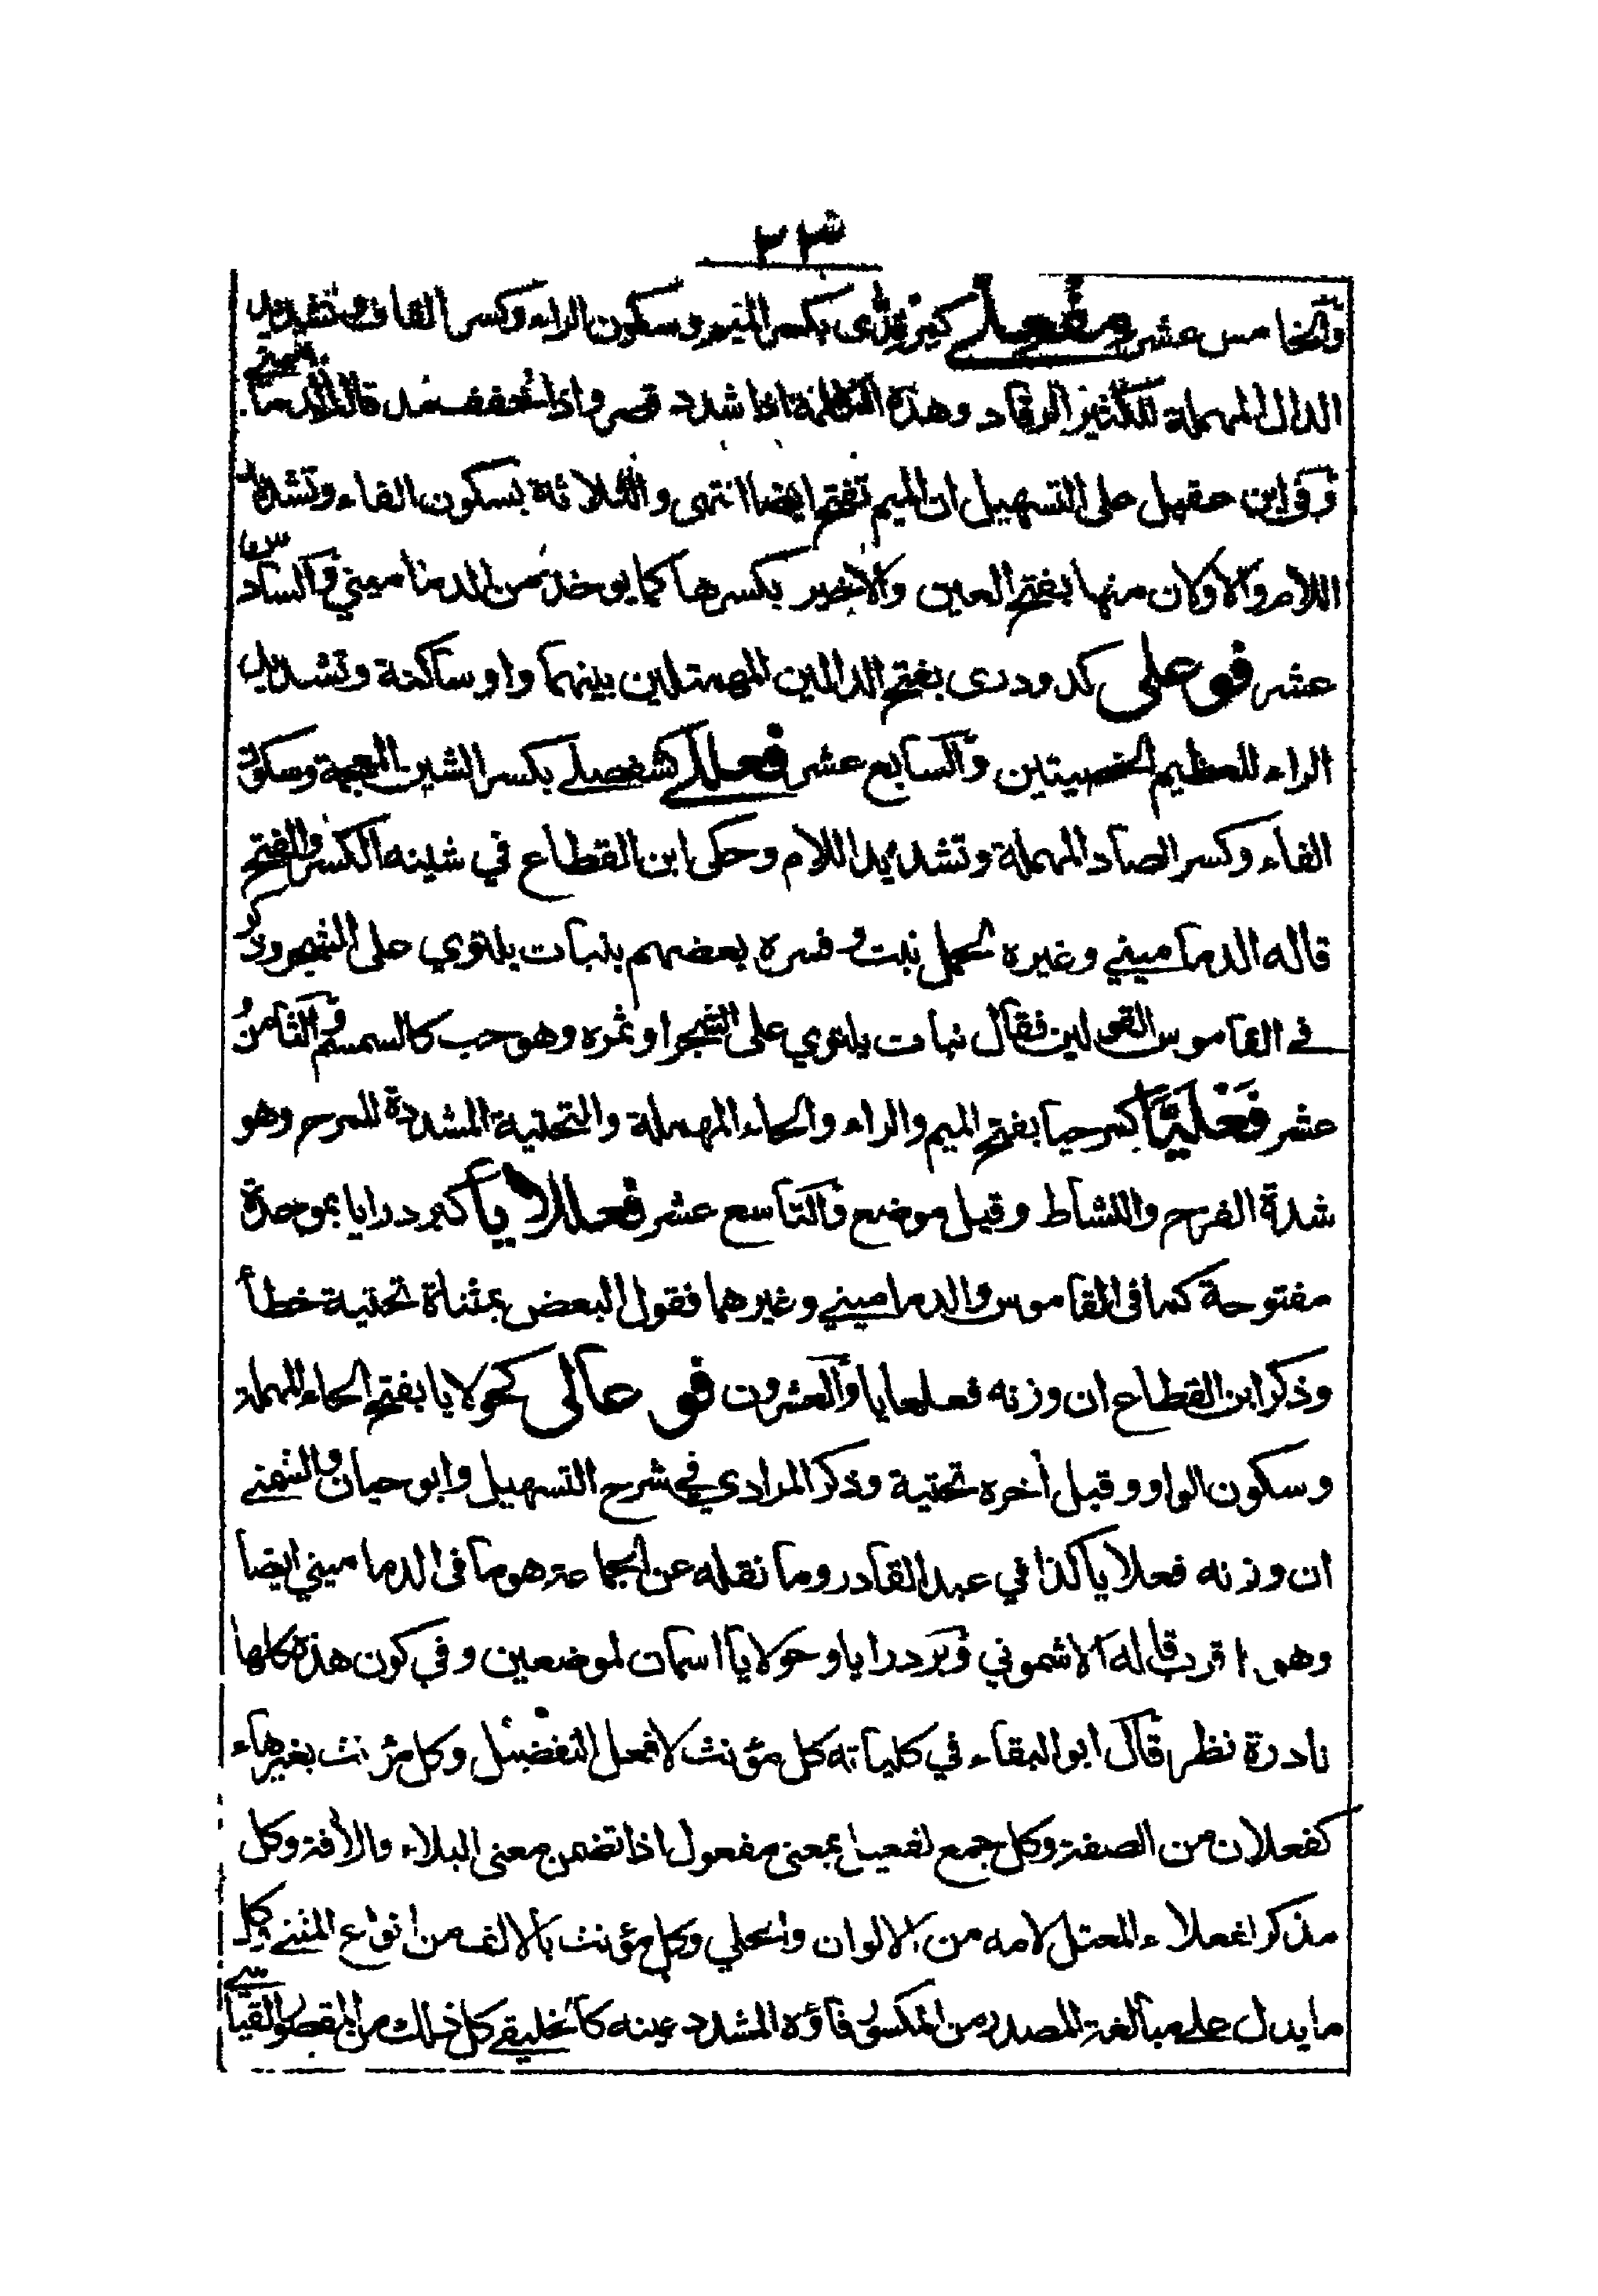 ٢٣
والخامس عشر مفعلى كمرقدى بكسر الميم وسكون الراء وكسر القاف وتشديد
الدال المهملة للكثير الرقاد وهذه الكلمة اذا شدد قصر واذا خفف مد قاله الدماميني
وفي ابن عقيل على التسهيل ان الميم تفتح ايضا انتهى والثلاثة بسكون الفاء وتشديد
اللام والاولان منها بفتح العين والاخير بكسرها كما يوخذ من الدماميني والسادس
عشر فوعلى كدودرى بفتح الدالين المهملتين بينهما واو ساكنة وتشديد
الراء للعظيم الخصيتين والسابع عشر فعللى كشفصلى بكسر الشين المعجمة وسكون
الفاء وكسر الصاد المهملة وتشديد اللام وحكى ابن القطاع في شينه الكسر والفتح
قاله الدماميني وغيره لحمل نبت وفسره بعضهم بنبات يلتوي على الشجر وذكر
في القاموس القولين فقال نبات يلتوي على الشجر او ثمره وهو حب كالسمسم والثامن
عشر فَعَلَيَّا كمرحيا بفتح الميم والراء والحاء المهملة والتحتية المشددة للمرح وهو
شدة الفرح والنشاط وقيل موضع والتاسع عشر فعللايا كبردرايا بموحدة
مفتوحة كما في القاموس والدماميني وغيرهما فقول البعض بمثناة تحتية خطأ
وذكر ابن القطاع ان وزنه فعلعايا والعشرون فوعالى كحولايا بفتح الحاء المهملة
وسكون الواو وقبل أخره تحتية وذكر المرادي في شرح التسهيل وابو حيان والشمني
ان وزنه فعلايا كذا في عبد القادر وما نقله عن الجماعة هو ما في الدماميني ايضا
وهو اقرب قاله الاشموني وبردرايا وحولايا اسمان لموضعين وفي كون هذه كلها
نادرة نظر قال ابو البقاء في كلياته كل مؤنث لافعل التفضيل وكل مؤنث بغير هاء
كفعلان من الصفة وكل جمع لفعيل بمعنى مفعول اذا تضمن معنى البلاء والأفة وكل
مذكر لفعلاء المعتل لامه من الالوان والحلي وكل مؤنث بالالف من انواع المشي وكل
ما يدل على مبالغة المصدر من المكسور فاؤه المشدد عينه كالخليفى كل ذلك من المقصور القياسي